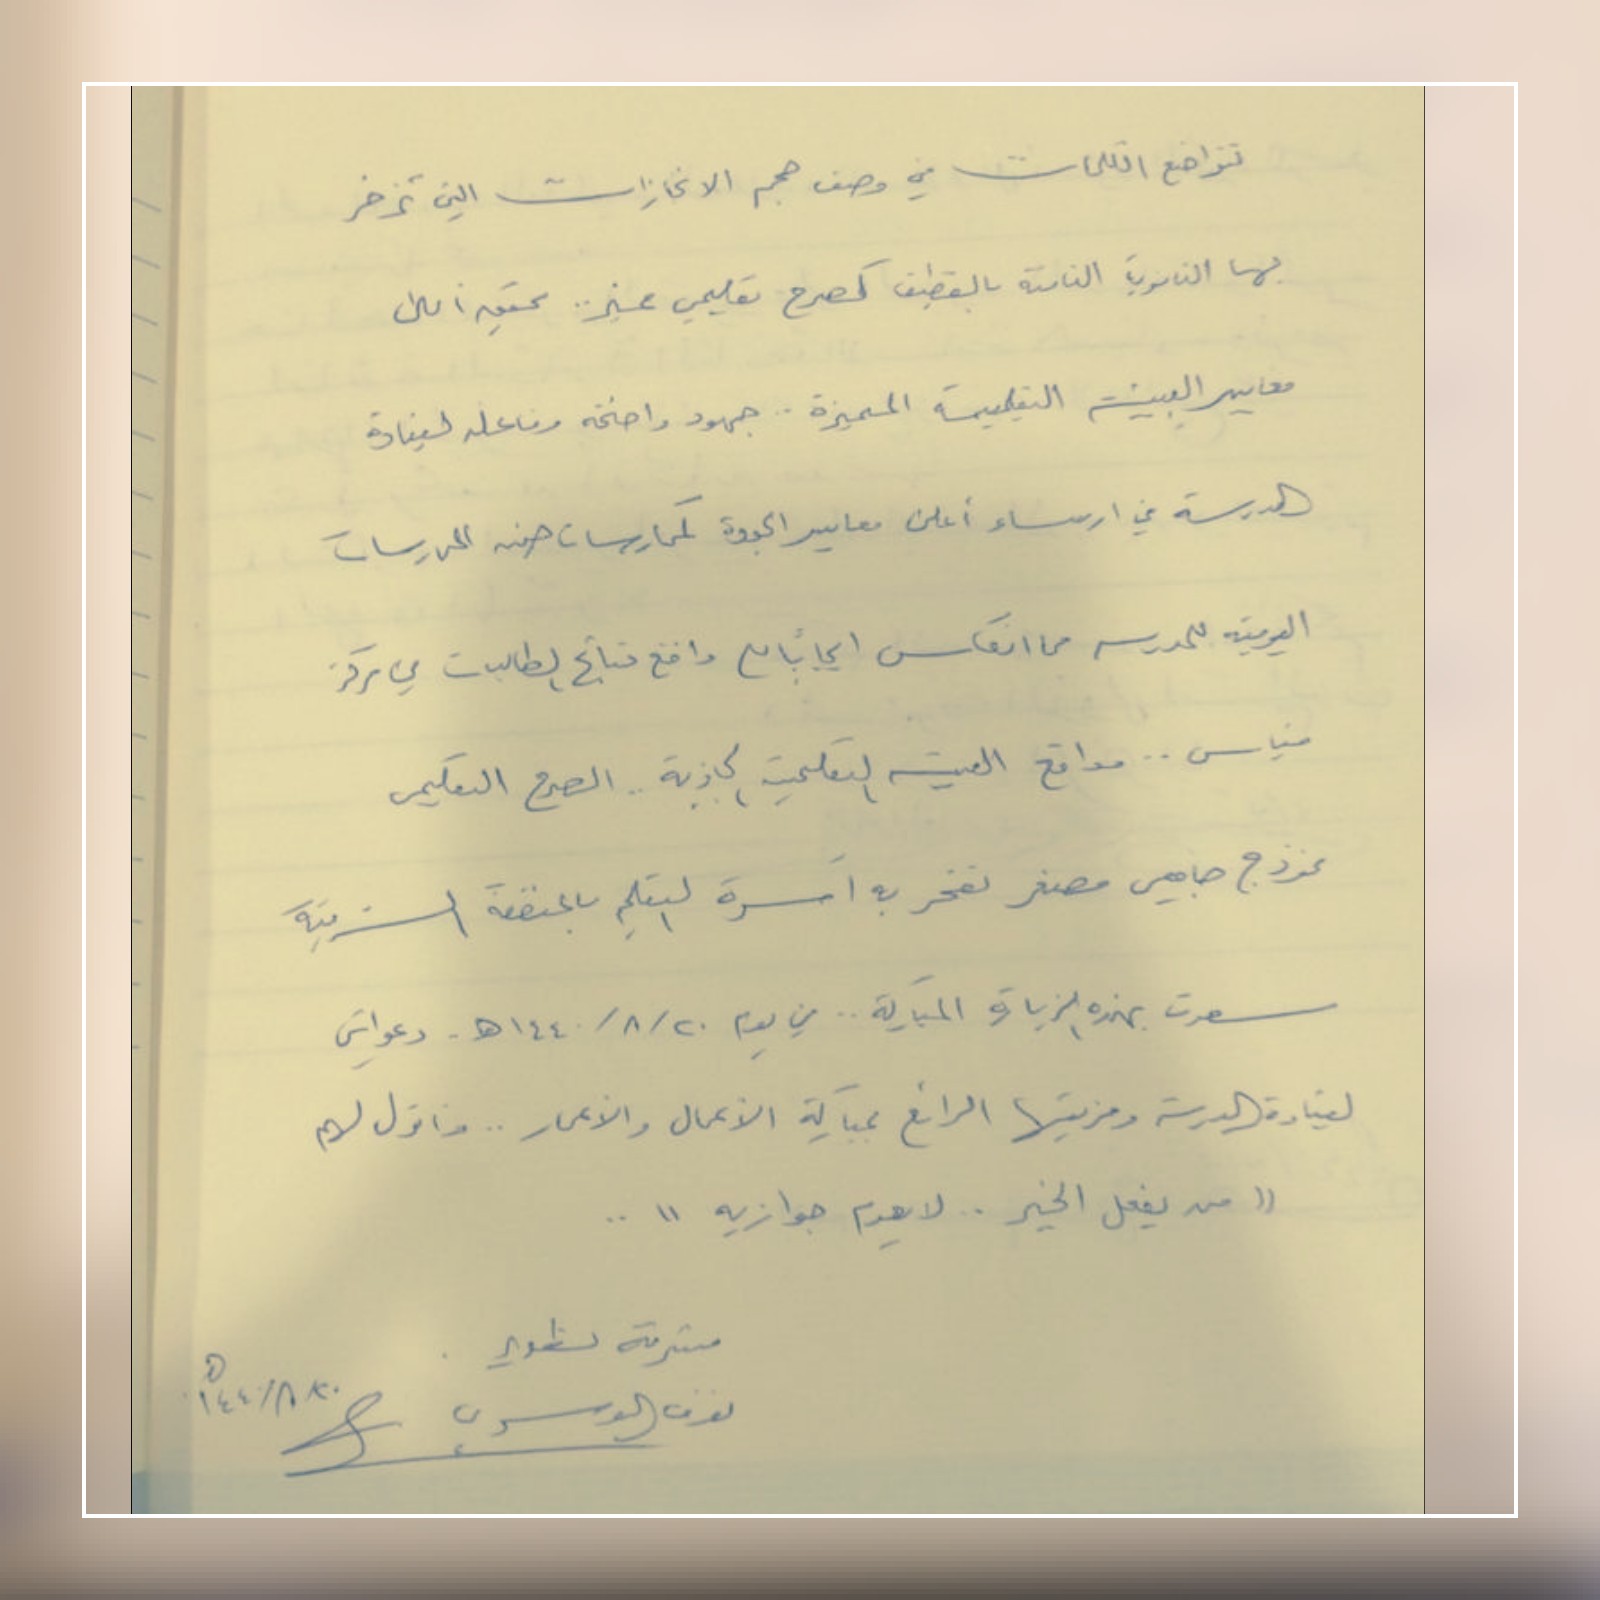 تتواضع الكلمات في وصف حجم الانجازات التي تزخر
بها الثانوية الثامنة بالقطيف كصرح تعليمي مميز .. محققه أعلى
معايير البيئة التعليمية المتميزة .. جهود واضحة وفاعله لقيادة
المدرسة في ارساء أعلى معايير الجودة لممارسات المدرسات
اليومية للمدرسه مما انعكس ايجاباً على واقع نتائج الطالبات في مركز
قياس .. وواقع البيئة التعليمية الجاذبة .. الصرح التعليمي
نموذج مصغر نفخر به أسرة التعليم بالمنطقة الشرقية
سعدت بهذه الزيارة المباركة .. في يوم ٢٠/٨/١٤٤٠هـ .. دعواتي
لقيادة المدرسة وفريقها الرائع بمباركة الأعمال والأعمار .. وأقول لهم
" من يفعل الخير .. لا يعدم جوازيه " ..
مشرفة تطوير
نوف الدوسري
٢٠/٨/١٤٤٠هـ